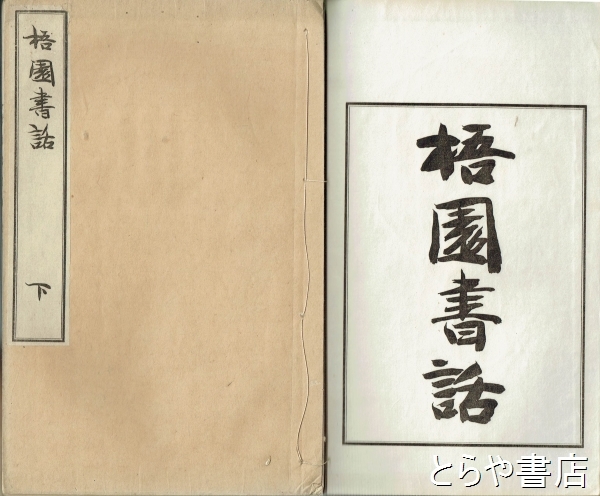 梧園書話
下
梧園書話
とらや書店